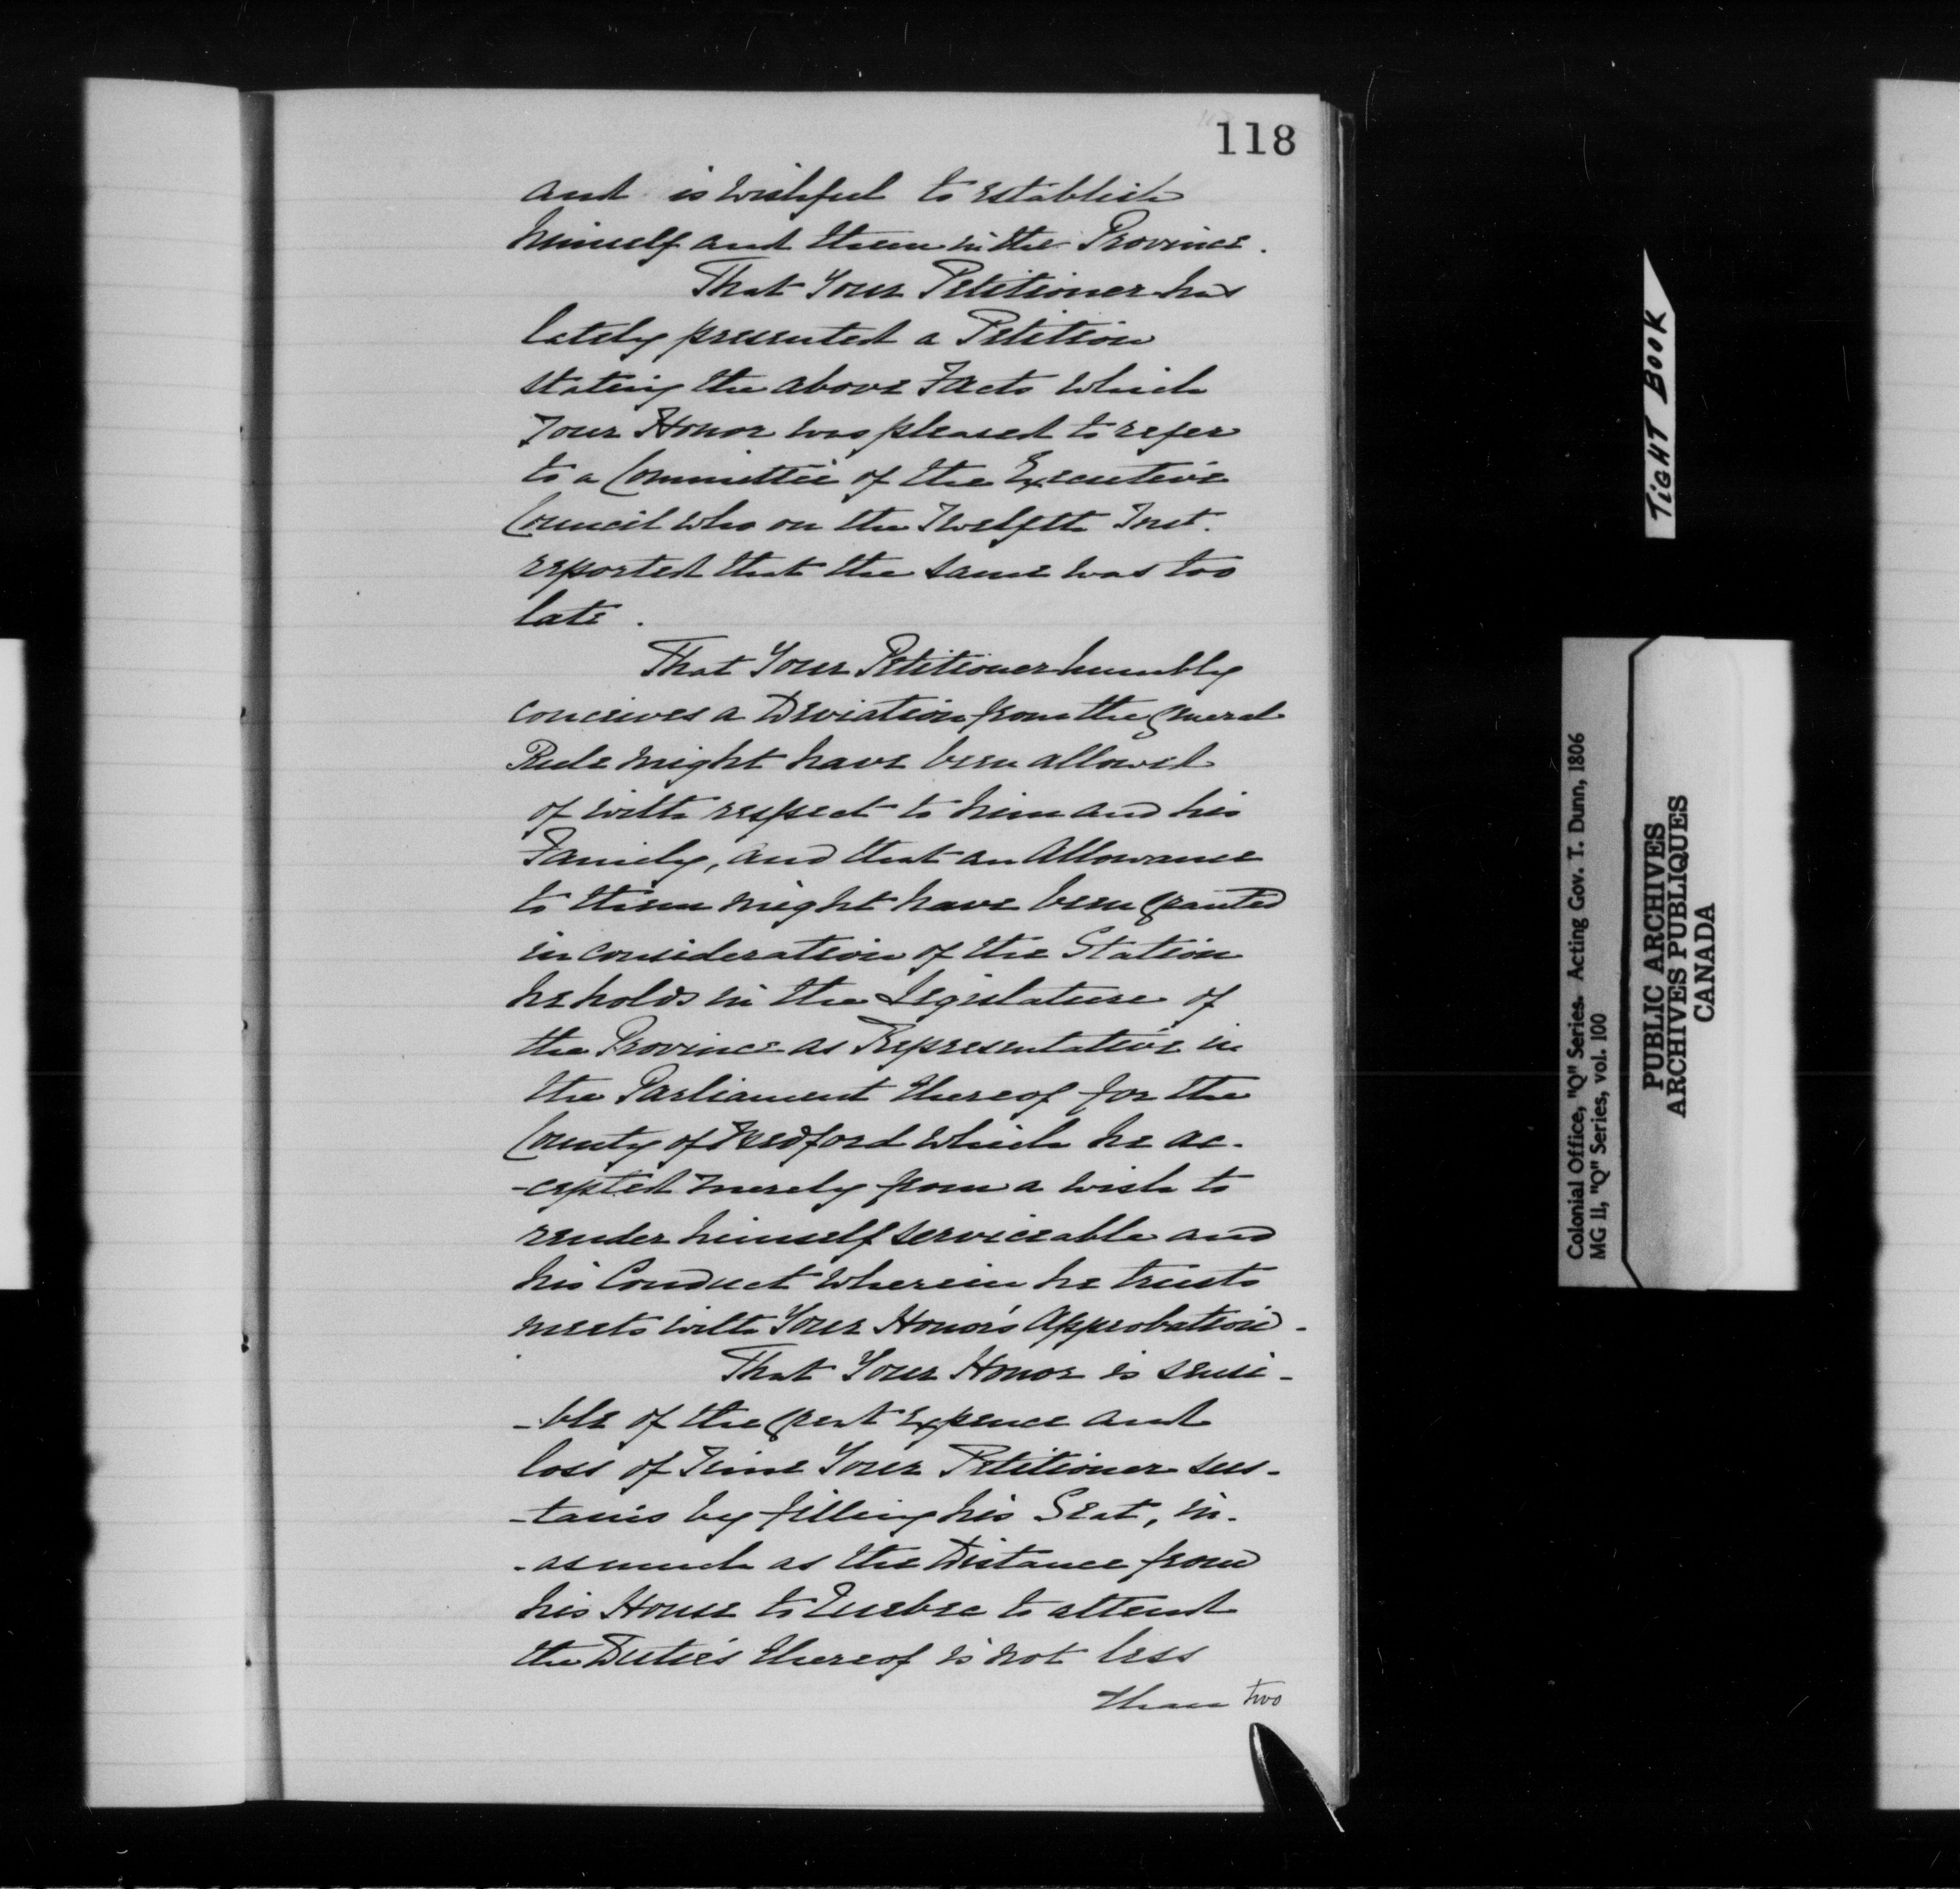 118
and is wishful to establish
himself and them in the Province.
That Your Petitioner has
lately presented a Petition
stating the above Facts which
Your Honor was pleased to refer
to a Committee of the Executive
Council who on the Twelfth Inst.
reported that the same was too
late.
That Your Petitioner humbly
conceives a Deviation from the general
Rule might have been allowed
of with respect to him and his
Family, and that an Allowance
to them might have been granted
in consideration of the Station
he holds in the Legislature of
the Province as Representative in
the Parliament thereof for the
County of Bedford which he ac-
-cepted merely from a wish to
render himself serviceable and
his Conduct wherein he trusts
meets with Your Honor's Approbation.
That Your Honor is sensi-
-ble of the great Expence and
loss of Time Your Petitioner sus-
-tains by filling his Seat, in-
-asmuch as the Distance from
his House to Quebec to attend
the Duties thereof is not less
than two
TIGHT BOOK
Colonial Office, "Q" Series. Acting Gov. T. Dunn, 1806
MG 11, "Q" Series, vol. 100
PUBLIC ARCHIVES
ARCHIVES PUBLIQUES
CANADA